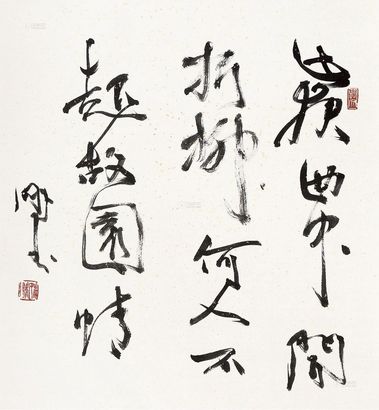 此夜曲中聞
折柳何人不
起故園情